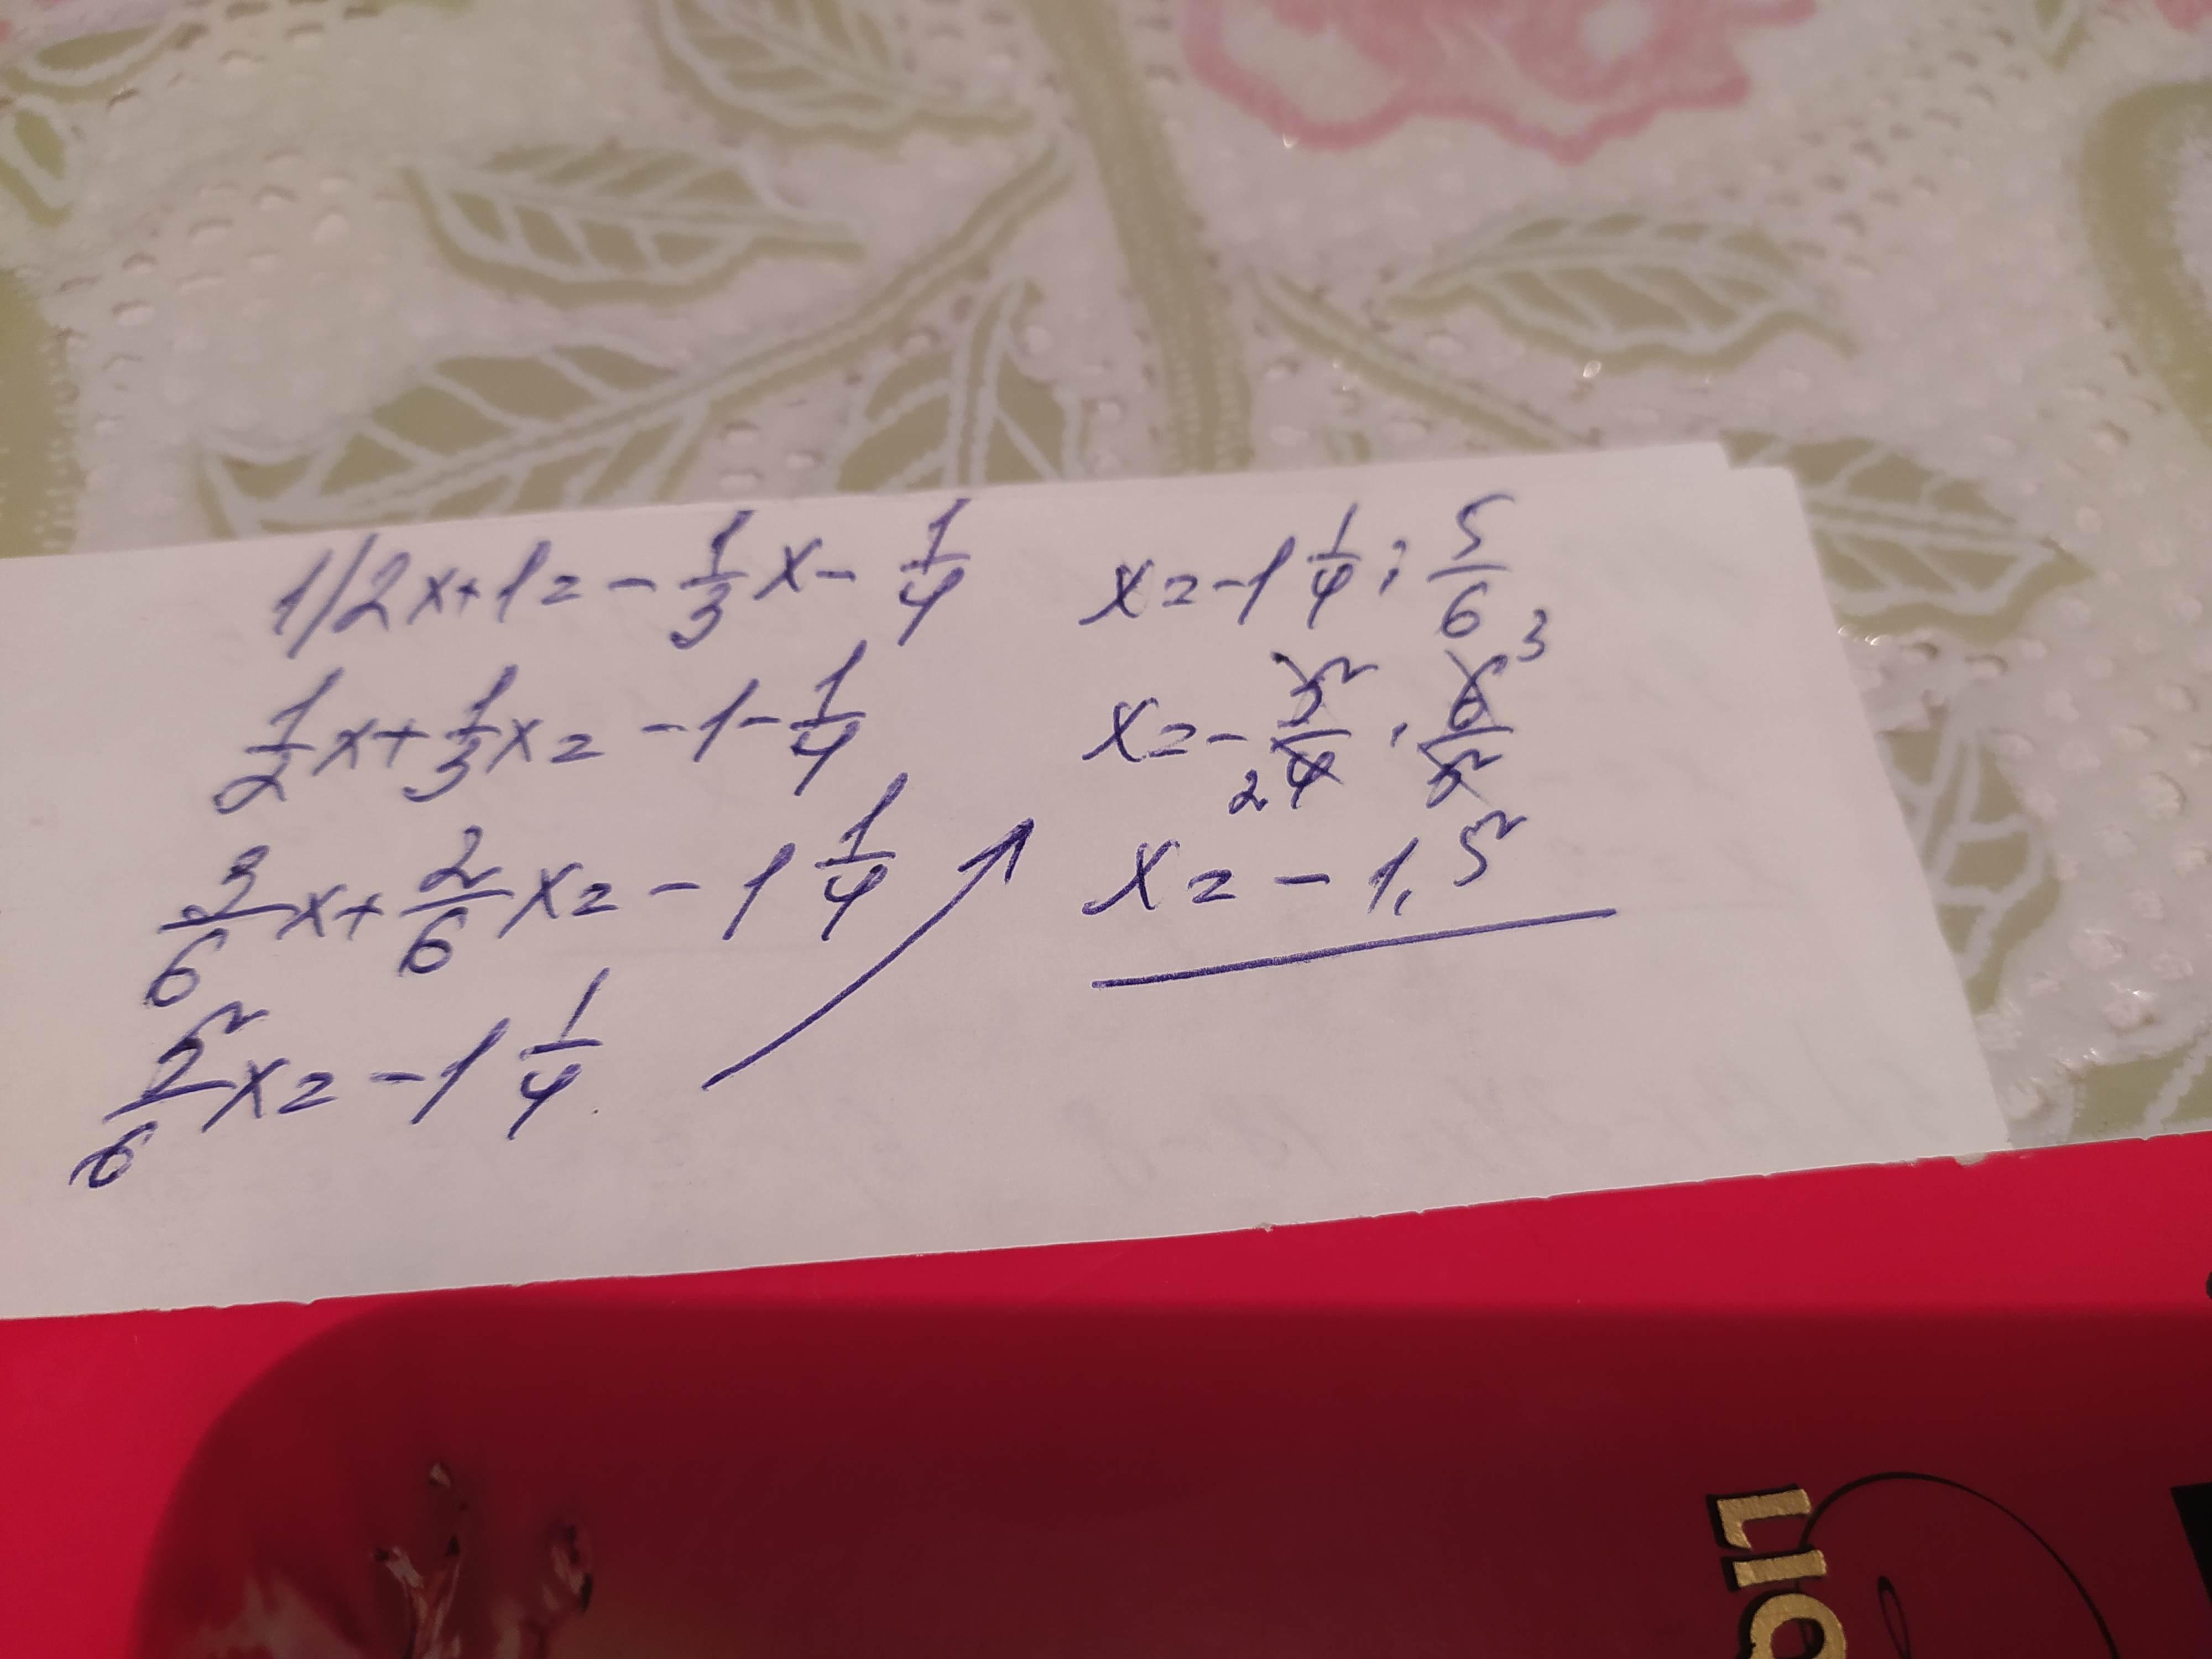 1/2x+1=-1/3x-1/4
1/2x+1/3x=-1-1/4
3/6x+2/6x=-1 1/4
5/6x=-1 1/4
x=-1 1/4:5/6
x=-5/4·6/5
2 3
x=-1,5
LIQ